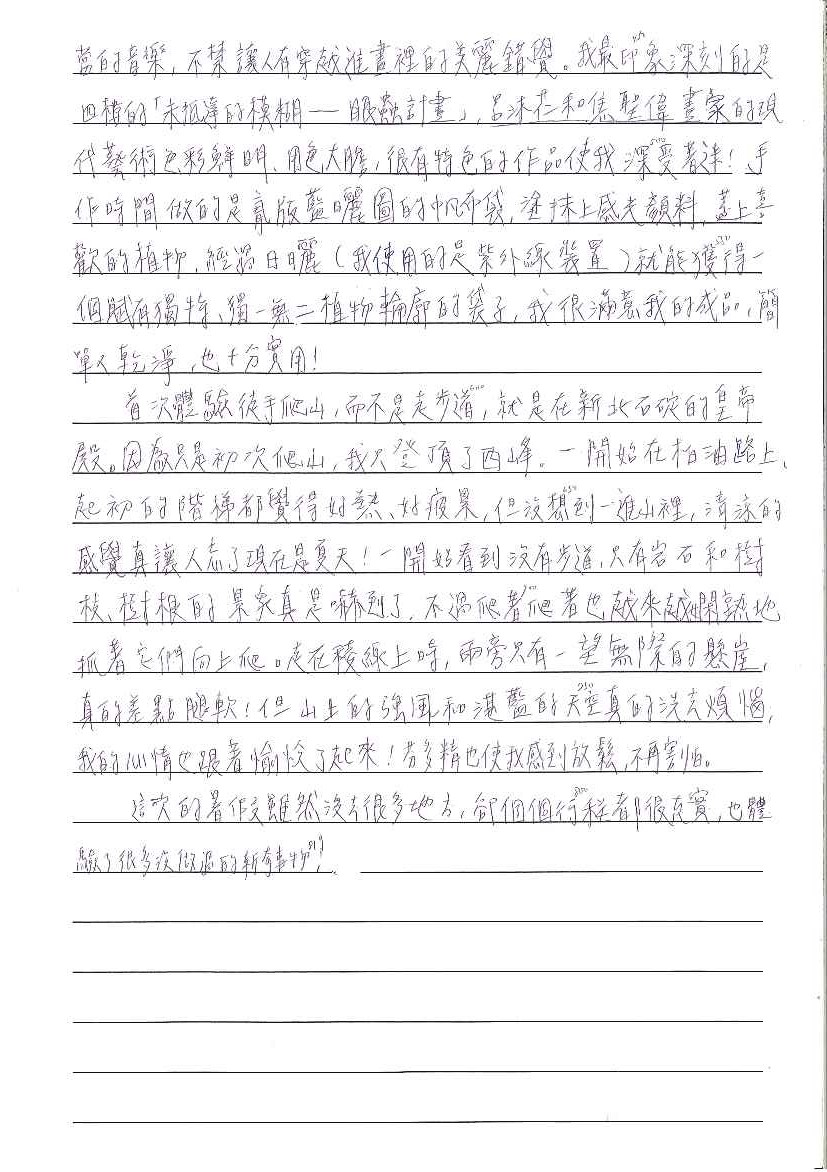 當的音樂，不禁讓人有穿越進畫裡的美麗錯覺。我最印象深刻的是
四樓的「未抵達的模糊——眼蟲計畫」，呂沐芢和焦聖偉畫家的現
代藝術色彩鮮明、用色大膽，很有特色的作品使我深受著迷！手
作時間做的是氰版藍曬圖的帆布袋，塗抹上感光顏料，蓋上喜
歡的植物，經過日曬（我使用的是紫外線裝置）就能獲得一
個賦有獨特、獨一無二植物輪廓的袋子，我很滿意我的成品，簡
單又乾淨，也十分實用！
首次體驗徒手爬山，而不是走步道，就是在新北石碇的皇帝
殿。因為只是初次爬山，我只登頂了西峰。一開始在柏油路上、
起初的階梯都覺得好熱、好疲累，但沒想到一進山裡，清涼的
感覺真讓人忘了現在是夏天！一開始看到沒有步道，只有岩石和樹
枝、樹根的景象真是嚇到了，不過爬著爬著也越來越嫻熟地
抓著它們向上爬。走在稜線上時，兩旁只有一望無際的懸崖，
真的差點腿軟！但山上的強風和湛藍的天空真的洗去煩惱，
我的心情也跟著愉悅了起來！芬多精也使我感到放鬆，不再害怕。
這次的暑假雖然沒去很多地方，卻個個行程都很充實，也體
驗了很多沒做過的新事物！